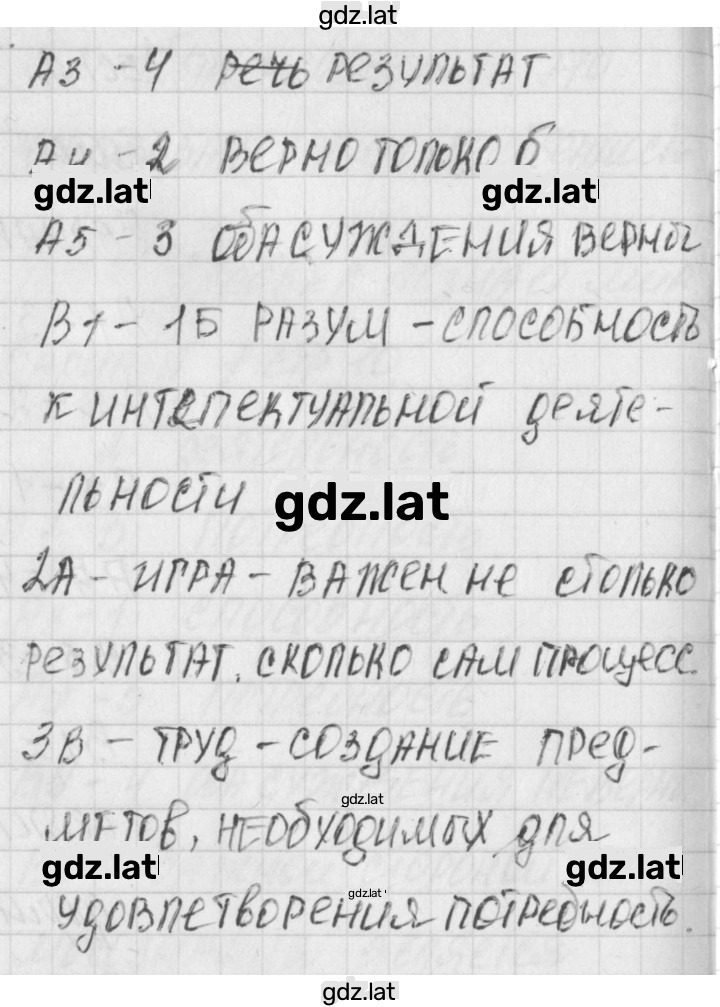 gdz.lat
А3 - 4 речь результат
А4 - 2 верно только б
gdz.lat gdz.lat
А5 - 3 оба суждения верны
В1 - 1Б разум - способность
к интелектуальной деяте-
льности
gdz.lat
2А - игра - важен не столько
результат, сколько сам процесс.
3В - труд - создание пред-
gdz.lat
метов, необходимых для
gdz.lat gdz.lat
gdz.lat
удовлетворения потребность.
gdz.lat